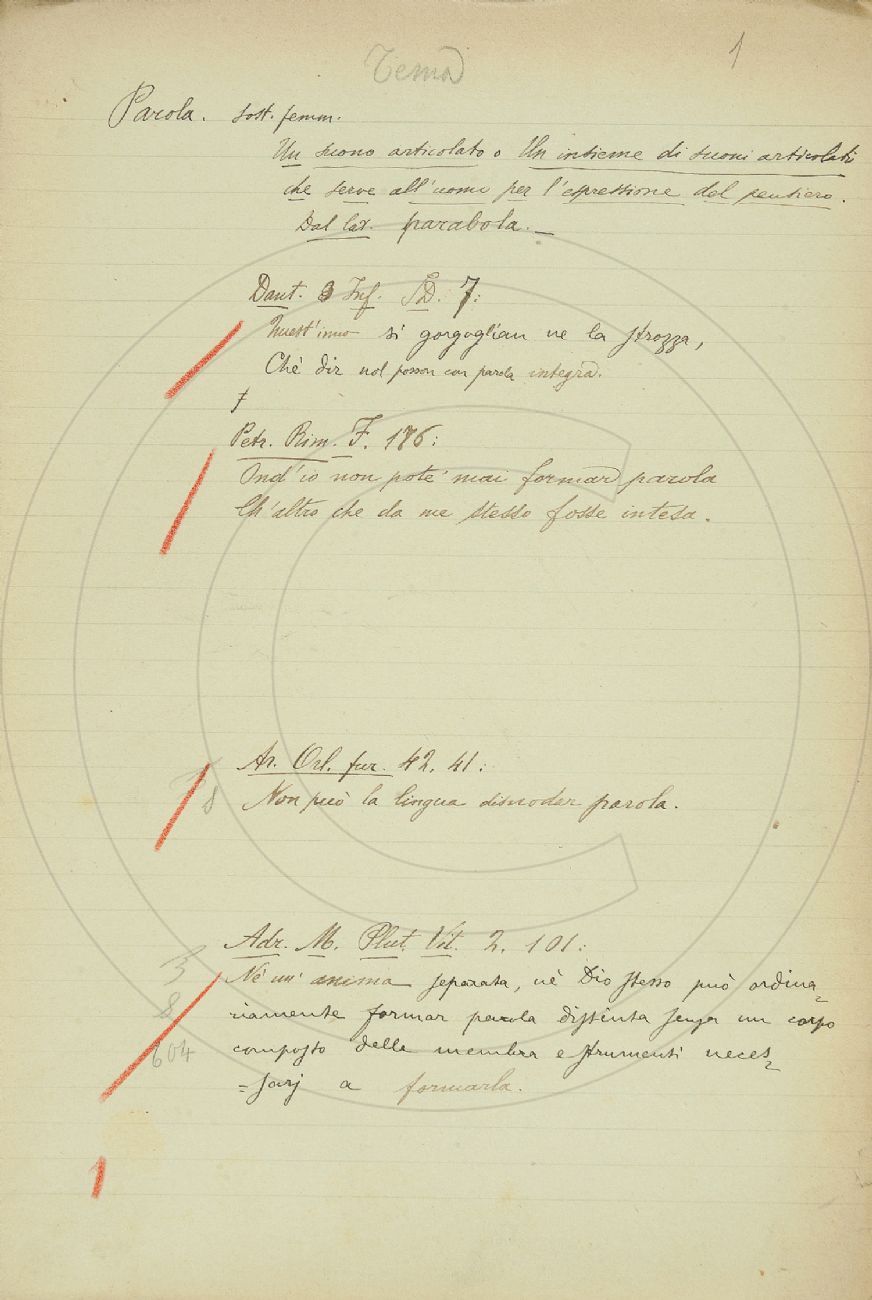 Tema
1
Parola. Sost. femm.
Un suono articolato o Un insieme di suoni articolati
che serve all'uomo per l'espressione del pensiero.
Dal lat. parabola. —
Dant. Inf. 7:
Quest'inno si gorgoglian ne la strozza,
Chè dir nol posson con parola integra.
Petr. Rim. F. 176:
Ond'io non pote' mai formar parola
Ch'altro che da me stesso fosse intesa.
Ar. Orl. fur. 42. 41:
8
Non può la lingua disnodar parola.
Adr. M. Plut. Vit. 2. 101:
3
Nè un' anima separata, nè Dio stesso può ordina=
8
riamente formar parola distinta senza un corpo
composto delle membra e strumenti neces=
604
=sarj a formarla.